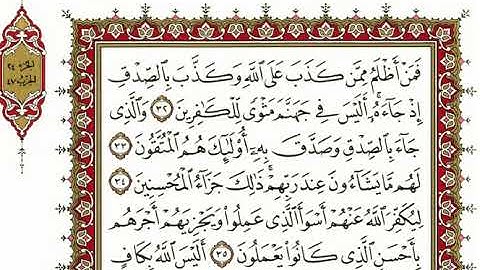 الجزء ٢٤
الحزب ٤٧
فَمَنْ أَظْلَمُ مِمَّن كَذَبَ عَلَى ٱللَّهِ وَكَذَّبَ بِٱلصِّدْقِ
إِذْ جَآءَهُۥٓ ۚ أَلَيْسَ فِى جَهَنَّمَ مَثْوًى لِّلْكَٰفِرِينَ ٣٢ وَٱلَّذِى
جَآءَ بِٱلصِّدْقِ وَصَدَّقَ بِهِۦٓ ۙ أُو۟لَٰٓئِكَ هُمُ ٱلْمُتَّقُونَ ٣٣
لَهُم مَّا يَشَآءُونَ عِندَ رَبِّهِمْ ۚ ذَٰلِكَ جَزَآءُ ٱلْمُحْسِنِينَ ٣٤
لِيُكَفِّرَ ٱللَّهُ عَنْهُمْ أَسْوَأَ ٱلَّذِى عَمِلُوا۟ وَيَجْزِيَهُمْ أَجْرَهُم
بِأَحْسَنِ ٱلَّذِى كَانُوا۟ يَعْمَلُونَ ٣٥ أَلَيْسَ ٱللَّهُ بِكَافٍ